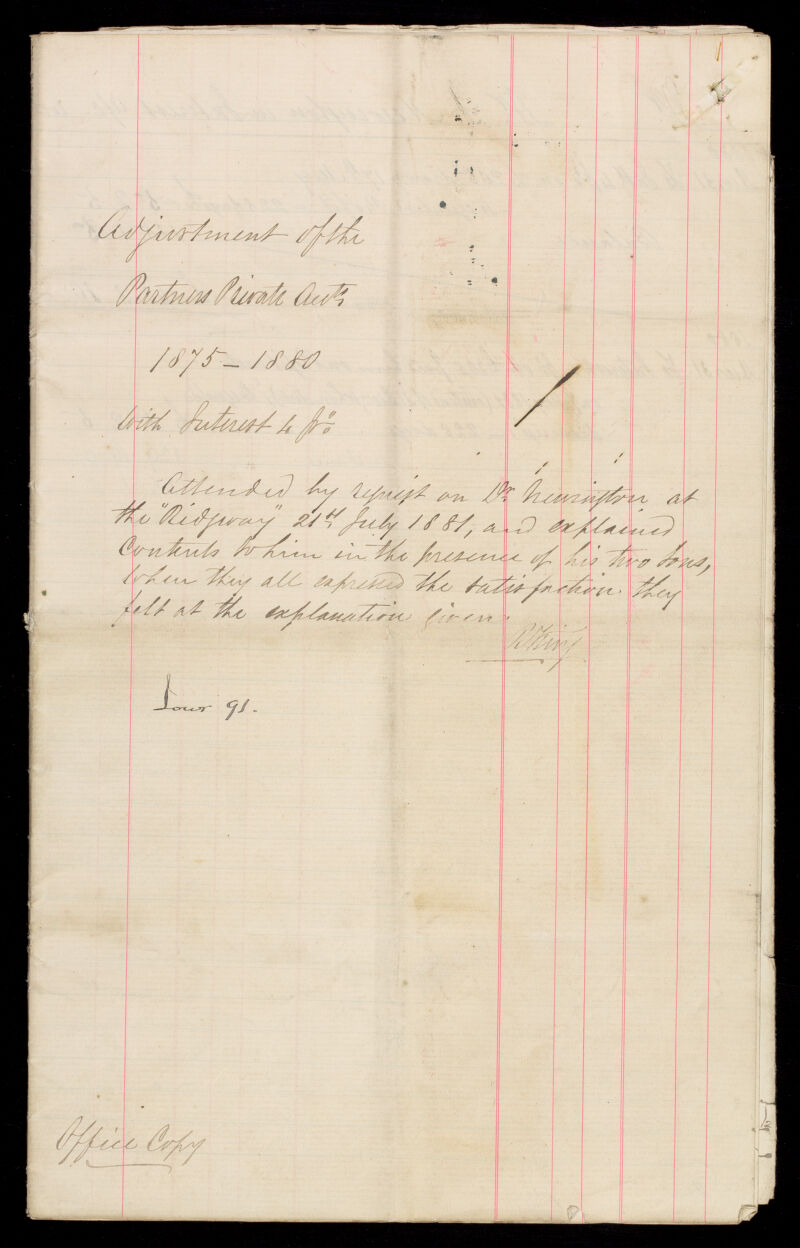 Adjustment of the
Partners Private Accts
1875 – 1880
With Interest to Do
Attended by request on Dr. Newington at
the "Ridgway" 21st July 1881, and explained
Contents to him in the presence of his two sons,
when they all expressed the satisfaction they
felt at the explanation given.
91.
Office Copy